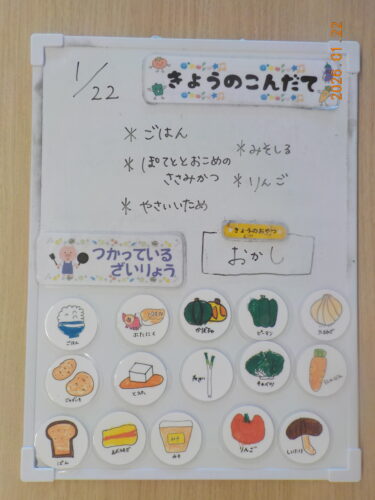 2026.01.22
1/22
きょうのこんだて
* ごはん
* ぽてととおこめの
ささみかつ
* やさいいため
* みそしる
* りんご
きょうのおやつ
おかし
つかっている
ざいりょう
ごはん
ぶたにく
かぼちゃ
ピーマン
たまねぎ
じゃがいも
とうふ
ねぎ
キャベツ
にんじん
ぱん
あぶらあげ
みそ
りんご
しいたけ